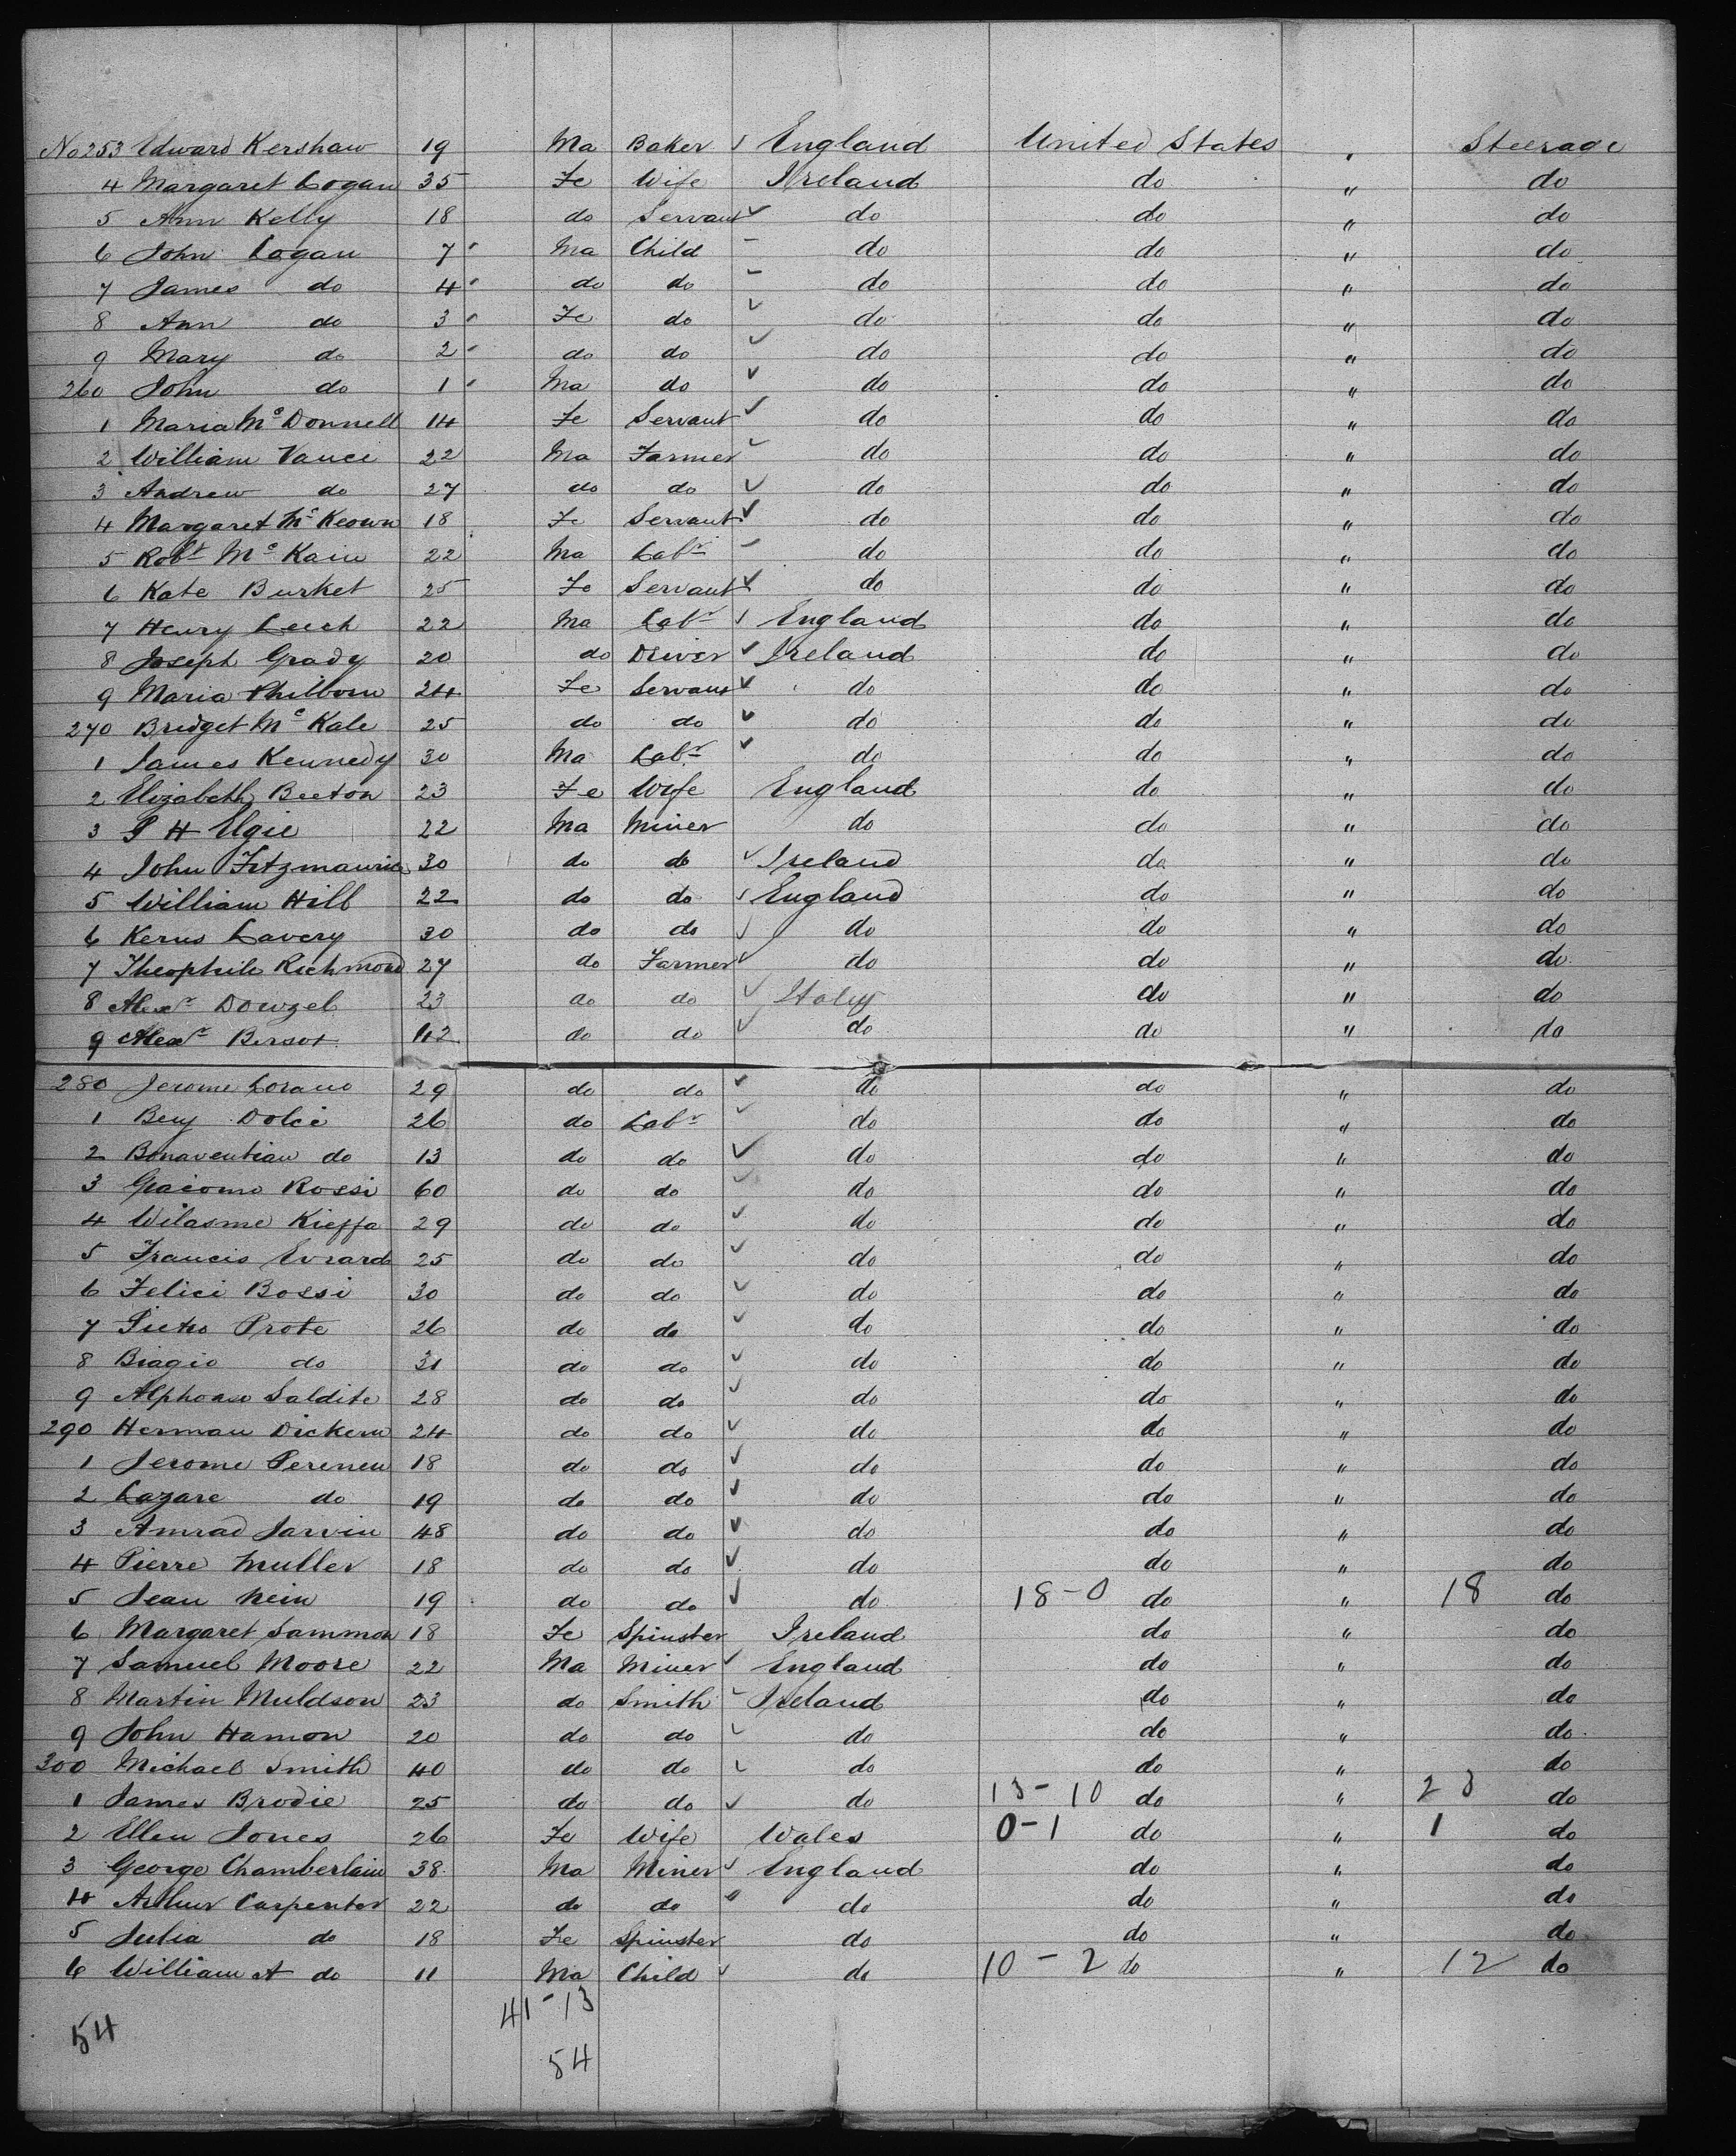 No 253 Edward Kershaw 19 Ma Baker ✓ England United States " Steerage
4 Margaret Logan 35 Fe Wife Ireland do " do
5 Ann Kelly 18 do Servant ✓ do do " do
6 John Logan 7 Ma Child - do do " do
7 James do 4 do do - do do " do
8 Ann do 3 Fe do ✓ do do " do
9 Mary do 2 do do ✓ do do " do
260 John do 1 Ma do ✓ do do " do
1 Maria McDonnell 14 Fe Servant ✓ do do " do
2 William Vance 22 Ma Farmer ✓ do do " do
3 Andrew do 27 do do ✓ do do " do
4 Margaret McKeown 18 Fe Servant ✓ do do " do
5 Robt McKain 22 Ma Labr - do do " do
6 Kate Burket 25 Fe Servant ✓ do do " do
7 Henry Leech 22 Ma Labr ✓ England do " do
8 Joseph Grady 20 do Driver ✓ Ireland do " do
9 Maria Philborn 24 Fe Servant ✓ do do " do
270 Bridget McKale 25 do do ✓ do do " do
1 James Kennedy 30 Ma Labr ✓ do do " do
2 Elizabeth Beeton 23 Fe Wife England do " do
3 P H Elgie 22 Ma Miner do do " do
4 John Fitzmaurice 30 do do ✓ Ireland do " do
5 William Hill 22 do do ✓ England do " do
6 Kerus Lavery 30 do do ✓ do do " do
7 Theophile Richmond 27 do Farmer ✓ do do " do
8 Alexr Dowzel 23 do do ✓ Italy do " do
9 Alexr Bersot 42 do do ✓ do do " do
280 Jerome Lorano 29 do do ✓ do do " do
1 Benj Dolci 26 do Labr ✓ do do " do
2 Bonaventian do 13 do do ✓ do do " do
3 Giacomo Rossi 60 do do ✓ do do " do
4 Wilasme Kieffa 29 do do ✓ do do " do
5 Francis Evrard 25 do do ✓ do do " do
6 Felici Bossi 30 do do ✓ do do " do
7 Pietro Prote 26 do do ✓ do do " do
8 Biagio do 31 do do ✓ do do " do
9 Alphonse Saldite 28 do do ✓ do do " do
290 Herman Dickern 24 do do ✓ do do " do
1 Jerome Pereneu 18 do do ✓ do do " do
2 Lazare do 19 do do ✓ do do " do
3 Amrad Jarvin 48 do do ✓ do do " do
4 Pierre Muller 18 do do ✓ do do " do
5 Jean Nein 19 do do ✓ do 18-0 do " 18 do
6 Margaret Sammon 18 Fe Spinster Ireland do " do
7 Samuel Moore 22 Ma Miner ✓ England do " do
8 Martin Muldson 23 do Smith - Ireland do " do
9 John Hamon 20 do do ✓ do do " do
300 Michael Smith 40 do do ✓ do do " do
1 James Brodie 25 do do ✓ do 13-10 do " 23 do
2 Ellen Jones 26 Fe Wife Wales 0-1 do " 1 do
3 George Chamberlain 38 Ma Miner ✓ England do " do
4 Arthur Carpenter 22 do do " do do " do
5 Julia do 18 Fe Spinster do do " do
6 William A do 11 Ma Child ✓ do 10-2 do " 12 do
41-13
54
54